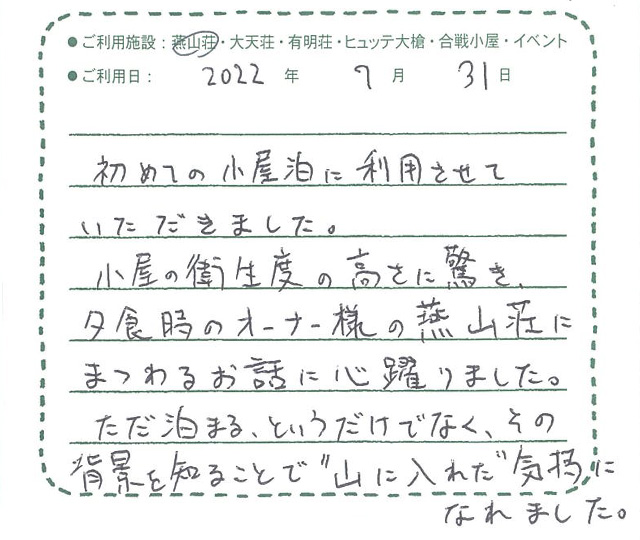 ●ご利用施設：燕山荘・大天荘・有明荘・ヒュッテ大槍・合戦小屋・イベント
●ご利用日： 2022 年 7 月 31 日
初めての小屋泊に利用させて
いただきました。
小屋の衛生度の高さに驚き、
夕食時のオーナー様の燕山荘に
まつわるお話に心躍りました。
ただ泊まる、というだけでなく、その
背景を知ることで"山に入れた"気持に
なれました。